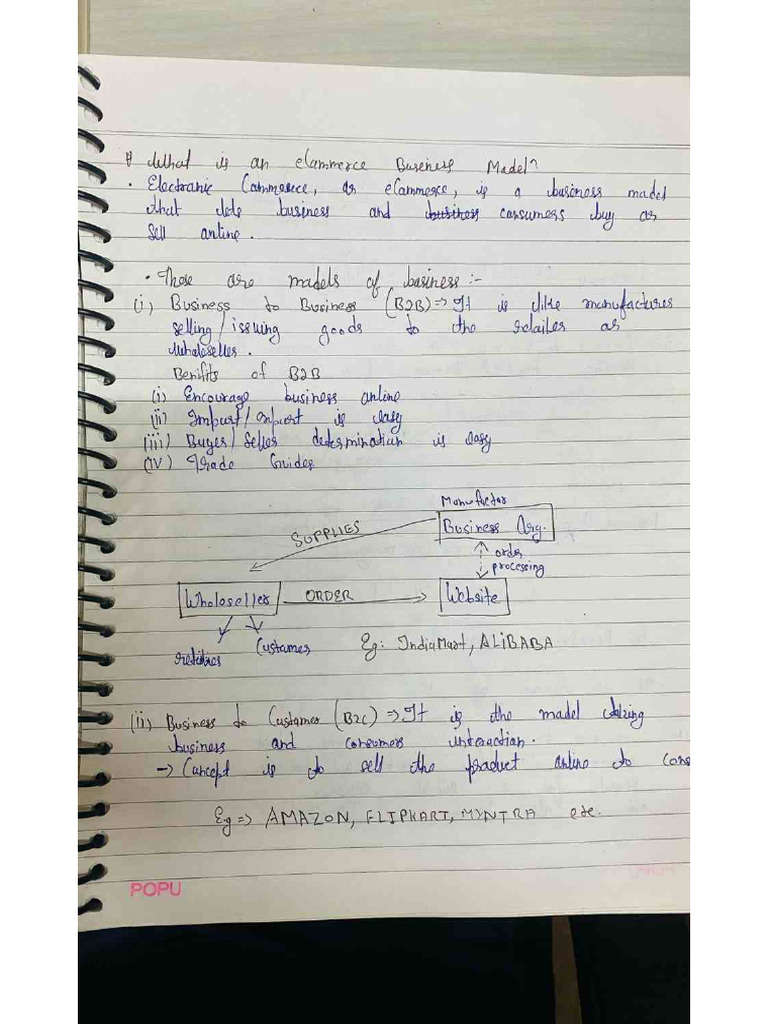 # What is an eCommerce Business Model?
• Electronic Commerce, or eCommerce, is a business model
that lets business and business consumers buy or
sell online.
• There are models of business :-
(i) Business to Business (B2B) => It is like manufactures
selling/issuing goods to the retailer or
Wholeseller.
Benifits of B2B
(i) Encourage business online
(ii) Import/Export is easy
(iii) Buyer/Seller determination is easy
(iv) Trade Guides
Manufactor
Business Org.
SUPPLIES
order
processing
Wholeseller
ORDER
Website
retailies
Customer
Eg: IndiaMart, ALIBABA
(ii) Business to Customer (B2C) => It is the model
business and consumers interaction.
-> Concept is to sell the product online to cons
Eg => AMAZON, FLIPKART, MYNTRA etc.
POPU